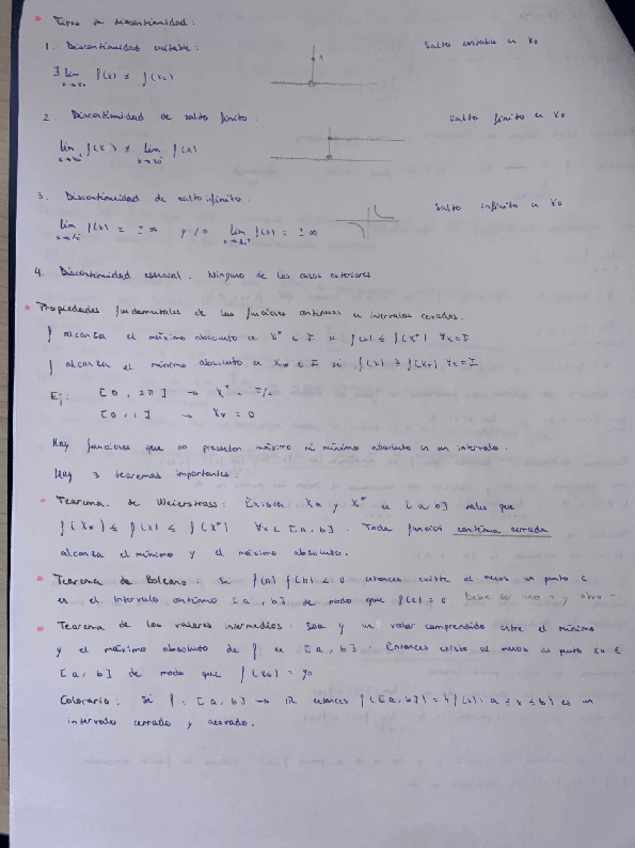 • Tipos de discontinuidad:
1. Discontinuidad evitable: Salto evitable en x₀
∃ lim x→x₀ f(x) ≠ f(x₀)
2 Discontinuidad de salto finito: Salto finito en x₀
lim x→x₀⁻ f(x) ≠ lim x→x₀⁺ f(x)
3. Discontinuidad de salto infinito: Salto infinito en x₀
lim x→x₀⁻ f(x) = ±∞ y/o lim x→x₀⁺ f(x) = ±∞
4. Discontinuidad esencial. Ninguno de los casos anteriores
• Propiedades fundamentales de las funciones continuas en intervalos cerrados.
f alcanza el máximo absoluto en x* ∈ I si f(x) ≤ f(x*) ∀x∈I
f alcanza el mínimo absoluto en x* ∈ I si f(x) ≥ f(x*) ∀x∈I
Ej: [0, 2π] → x* = π/2
[0, 1] → x* = 0
Hay funciones que no presentan máximo ni mínimo absoluto en un intervalo.
Hay 3 teoremas importantes:
• Teorema de Weierstrass: Existen x* y x* en [a b] tales que
f(x*) ≤ f(x) ≤ f(x*) ∀x∈[a, b]. Toda función continua cerrada
alcanza el mínimo y el máximo absoluto.
• Teorema de Bolzano: Si f(a) f(b) < 0 entonces existe al menos un punto c
en el intervalo continuo [a, b] de modo que f(c) = 0 Debe ser uno + y otro -
• Teorema de los valores intermedios: Sea y un valor comprendido entre el mínimo
y el máximo absoluto de f en [a, b]. Entonces existe al menos un punto x₀ ∈
[a, b] de modo que f(x₀) = y₀
Colorario: Si f: [a, b] → ℝ entonces f([a, b]) = {f(x): a ≤ x ≤ b} es un
intervalo cerrado y acotado.